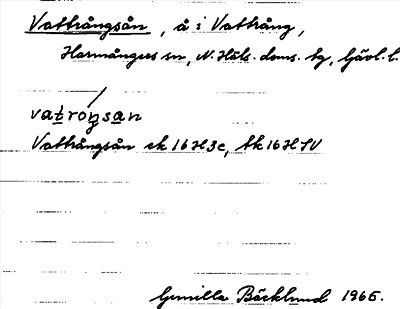 Vattrångsån, å i Vattrång,
Harmångers sn, N. Häls. doms. tg, Gävl. l.
vatroŋsan
Vattrångsån ek 16H3c, tk 16H SV
Gunilla Bäcklund 1965.